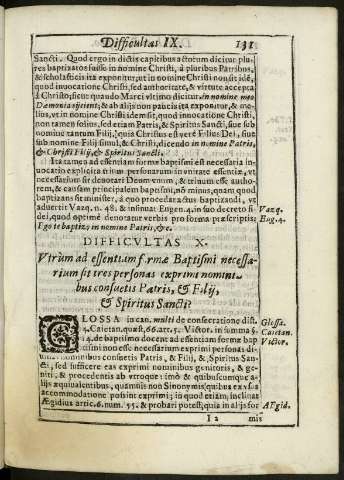 Difficultas IX. 131
Sancti. Quod ergo in dictis capitibus actorum dicitur plu-
res baptizatos fuisse in nomine Christi, à pluribus Patribus,
& scholasticis ita exponitur, ut in nomine Christi non sit idē,
quod invocatione Christi, sed authoritate, & virtute accepta
à Christo, sicut quando Marci ultimo dicitur. in nomine meo
Dæmonia eijcient; & ab alijs non paucis ita exponitur, & me-
lius, ut in nomine Christi idem sit, quod invocatione Christi,
non tamen solius, sed etiam Patris, & Spiritus Sancti, sive sub
nomine tantum Filij, quia Christus est verè Filius Dei, sive
sub nomine Filij simul, & Christi, dicendo in nomine Patris,
& Christi Filij, & Spiritus Sancti.
Ita tamen ad essentiam formæ baptismi est necessaria in-
vocatio explicita trium personarum in unitate essentiæ, vt
necessarium sit denotari Deum vnum, & trinum esse autho-
rem, & causam principalem baptismi, nõ minus, quam quod
baptizans sit minister, à quo procedat actus baptizandi, vt
advertit Vazq. n. 48. & insinuat Eugen. 4. in suo decreto fi-
dei, quod optimè denotatur verbis pro forma præscriptis
Ego te baptizo in nomine Patris, &c.
Vazq.
Eug. 4.
DIFFICULTAS X.
Vtrùm ad essentiam formæ Baptismi necessa-
rium sit tres personas exprimi nomini-
bus consuetis Patris, & Filij,
& Spiritus Sancti?
GLOSSA in can. multi de consecratione dist.
4. Caietan. quæst. 66. art. 5. Victor. in summa §.
14. de baptismo docent ad essentiam formæ bap-
tismi non esse necessarium exprimi personas di-
vinas nominibus consuetis Patris, & Filij, & Spiritus San-
cti, sed sufficere eas exprimi nominibus genitoris, & ge-
niti, & procedentis ab vtroque: imò & quibuscumque a-
lijs æquivalentibus, quamvis non Sinonymis quibus ex vsus
accommodatione possint exprimi; in quod etiam, inclinat
Ægidius artic. 6. num. 55. & probari potest; quia in alijs for
Glossa.
Caietan.
Victor.
Ægid.
I 2 mis